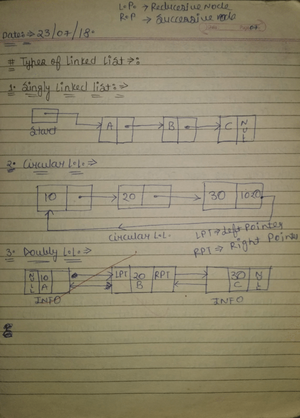 L.P. → Predecessive Node
R.P → Successive node
Date: → 23/07/18.
# Types of Linked List →:
1. Singly Linked list: →
A B C NULL
Start
2. Circular L.L. →
10 20 30 1000
Circular L.L.
LPT → Left Pointer
RPT → Right Pointer
3. Doubly L.L. →
10 LPT 20 RPT 30
A B C
INFO INFO